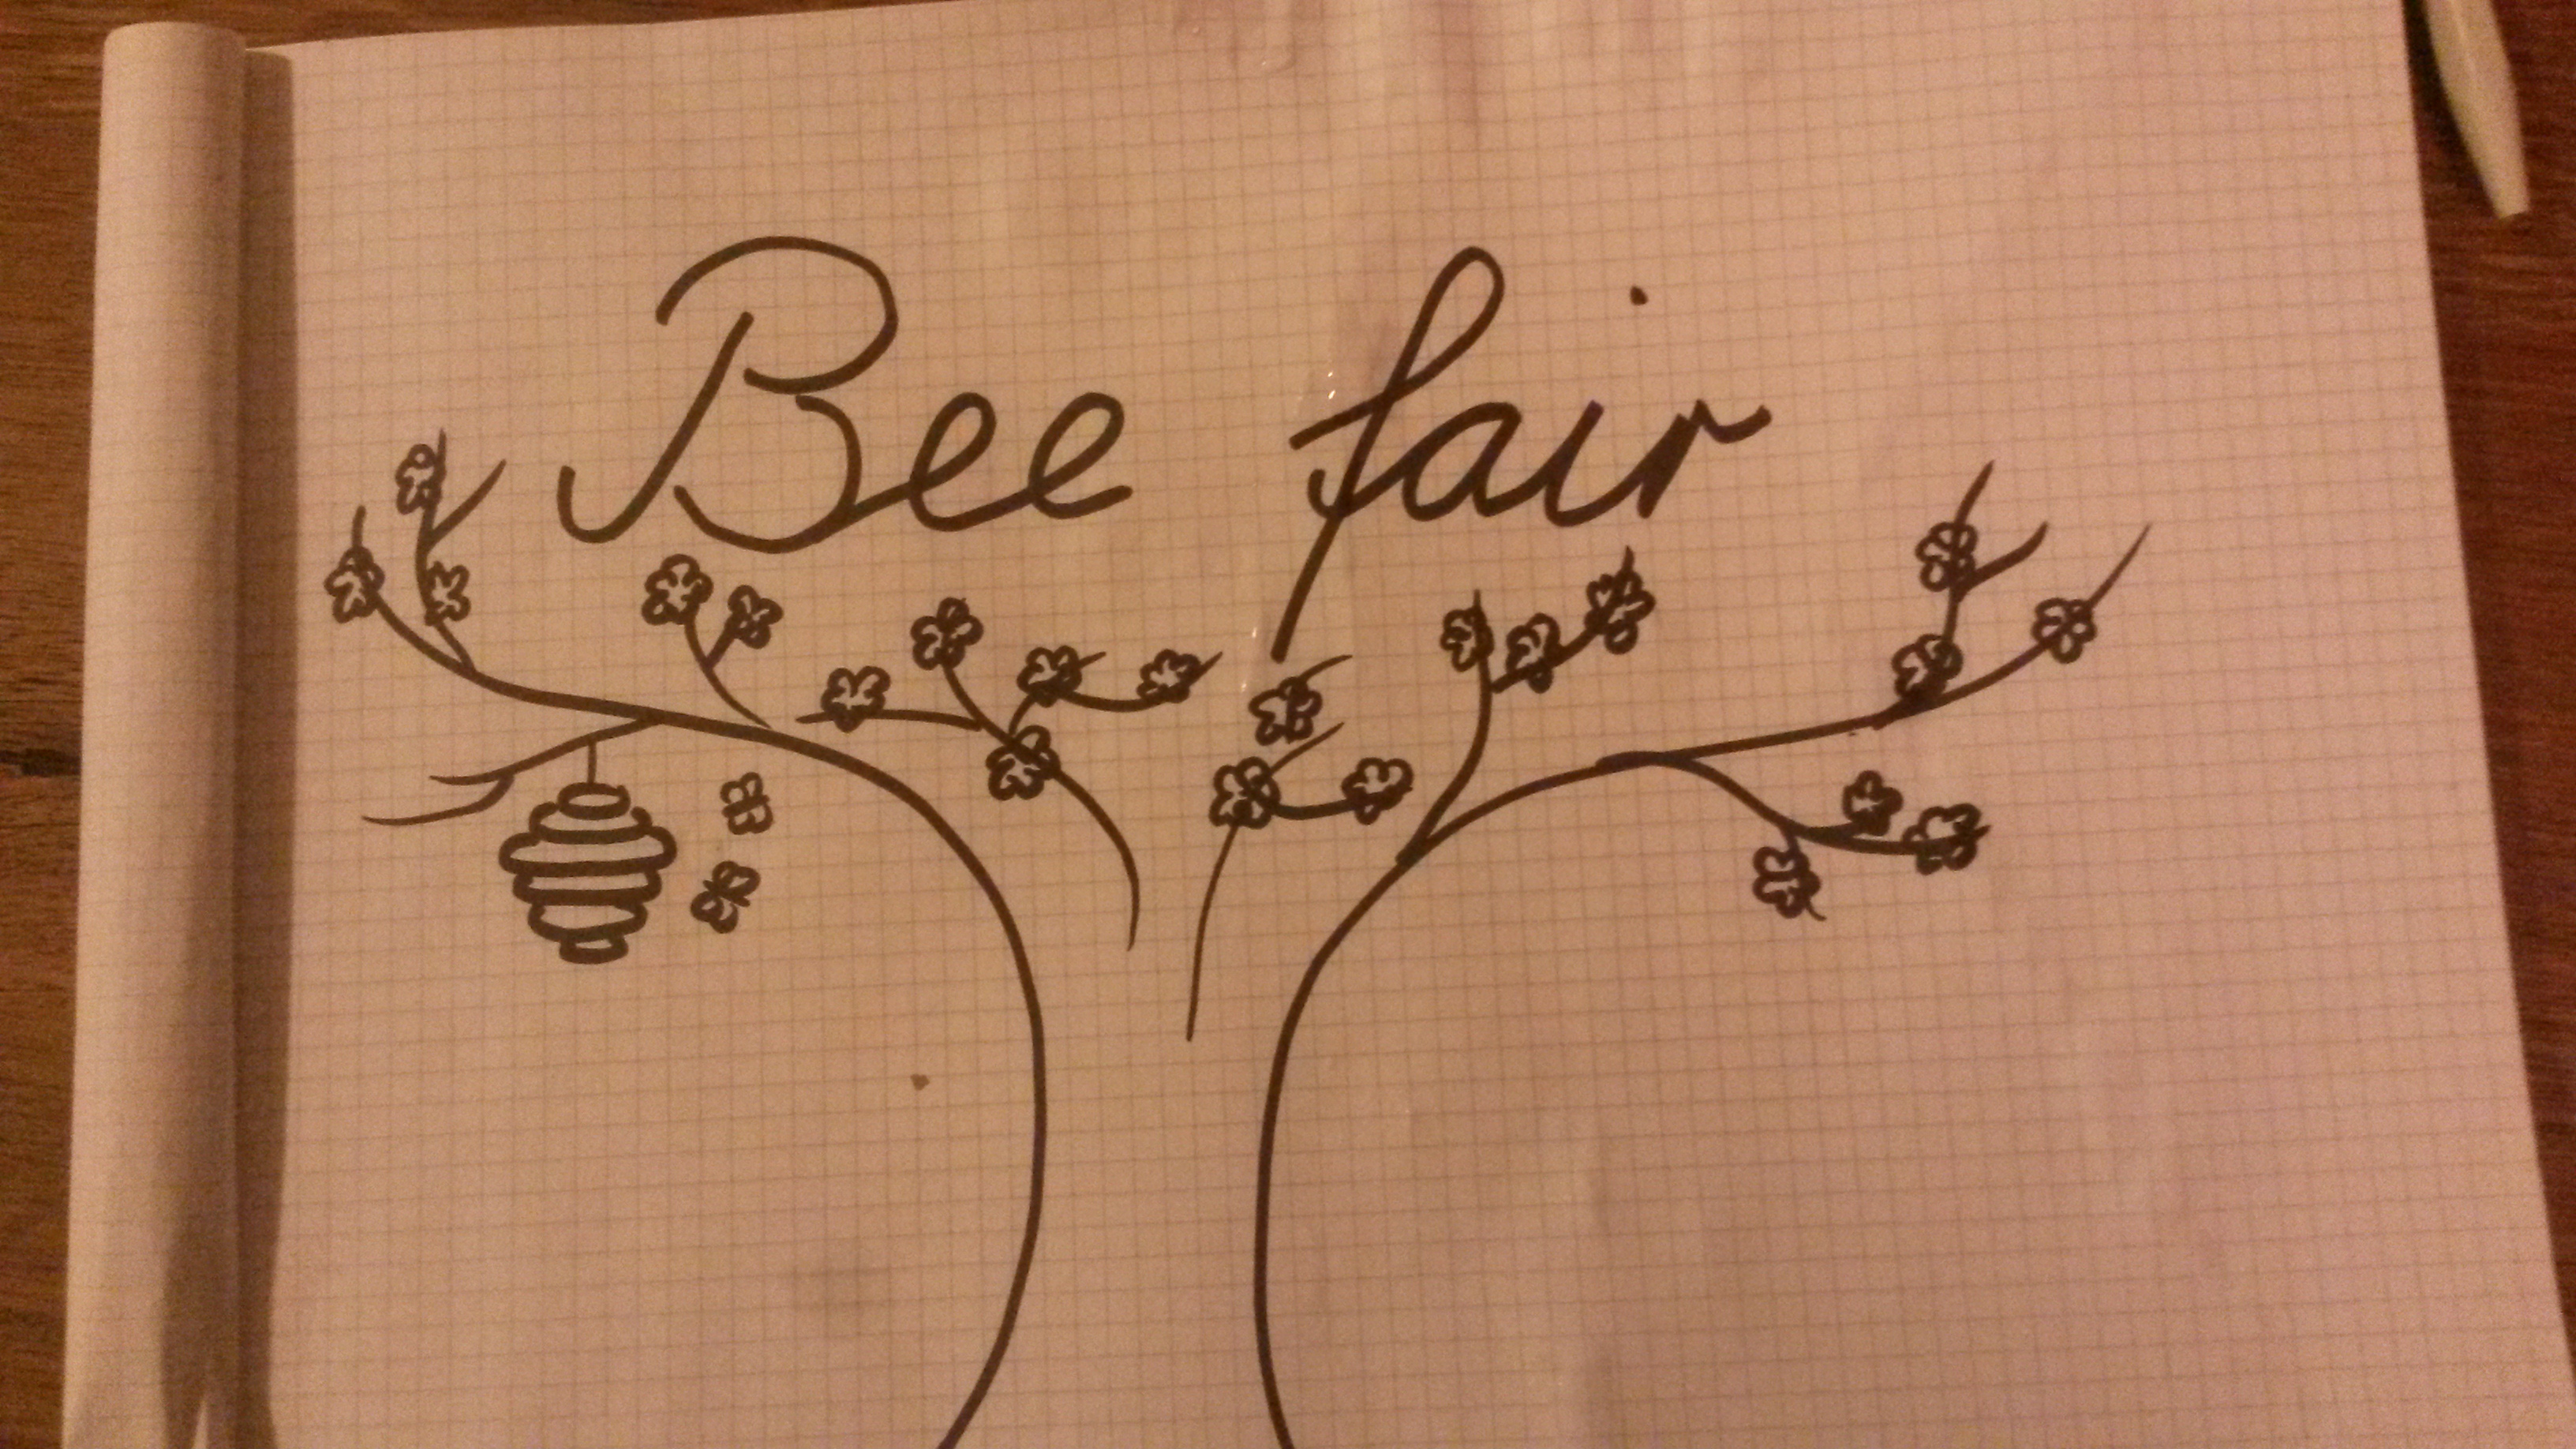 Bee fair